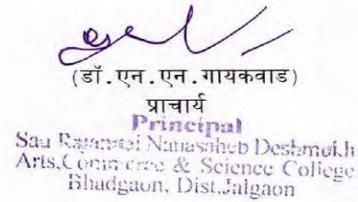 (डॉ.एन.एन.गायकवाड)
प्राचार्य
Principal
Sau Nanasaheb Deshmukh
Arts, Commerce & Science College
Bhadgaon, Dist.Jalgaon